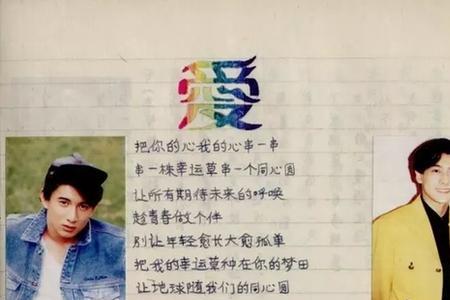 爱
把你的心我的心串一串
串一株幸运草串一个同心圆
让所有期待未来的呼唤
趁青春做个伴
别让年轻愈长大愈孤单
把我的幸运草种在你的梦田
让地球随我们的同心圆